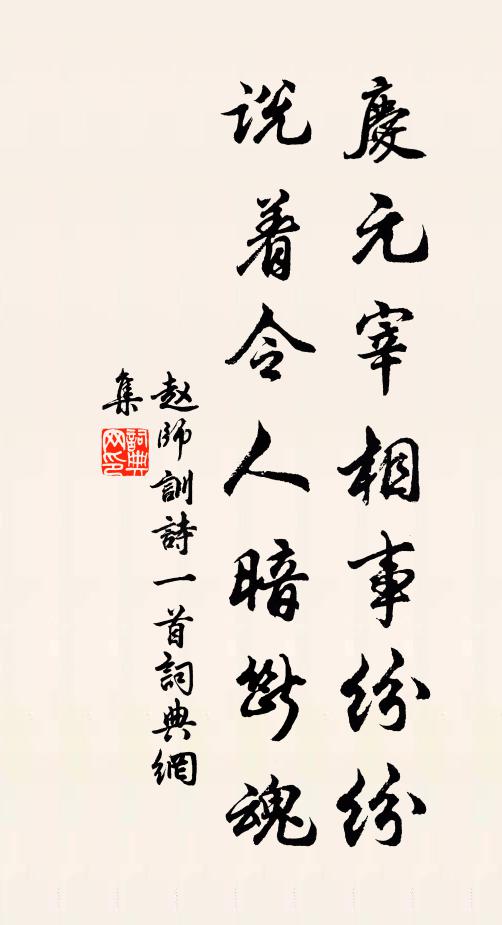 慶元宰相事紛紛
説着令人暗斷魂
赵師訓詩一首詞典網
集
詞典网印